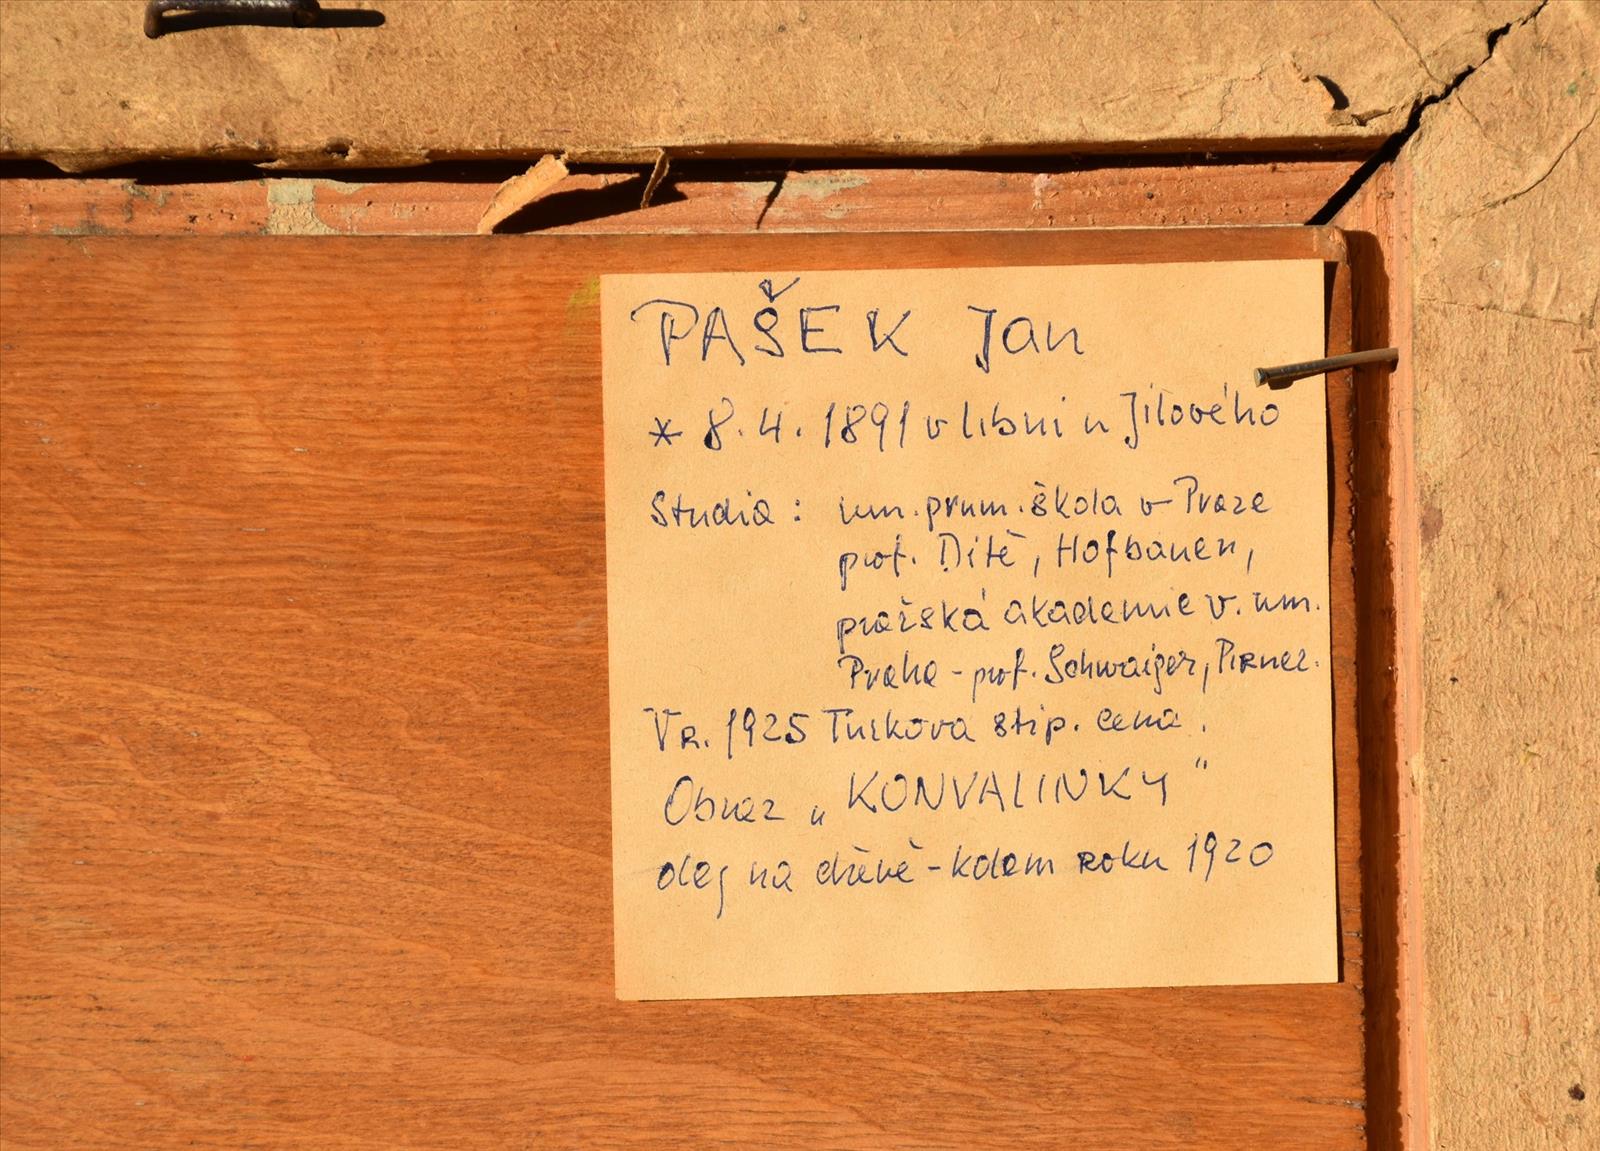 PAŠEK Jan
* 8.4.1891 v Libni u Jílového
Studia: um. prum. škola v Praze
prof. Dítě, Hofbauer,
pražská akademie v. um.
Praha - prof. Schwaiger, Pirner.
V r. 1925 Turkova stip. cena.
Obraz „KONVALINKY“
olej na dřevě - kolem roku 1920